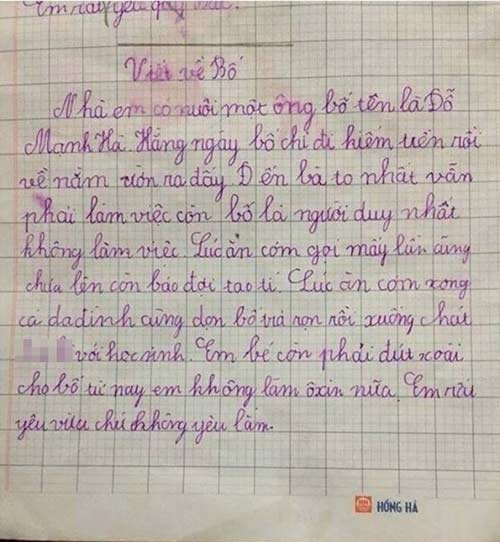 Em rất yêu
Viết về Bố
Nhà em có nuôi một ông bố tên là Đỗ
Mạnh Hà. Hằng ngày bố chỉ đi kiếm tiền rồi
về nằm ưỡn ra đấy. Đến bà to nhất vẫn
phải làm việc còn bố là người duy nhất
không làm việc. Lúc ăn cơm gọi mấy lần cũng
chưa lên còn bảo đợi tao tí. Lúc ăn cơm xong
cả da đình cùng dọn bố vả rọn rồi xuống chat
với học sinh. Em bé còn phải dút xoài
cho bố từ nay em không làm ôxin nữa. Em rất
yêu vừa chứ không yêu lắm.
HỒNG HÀ